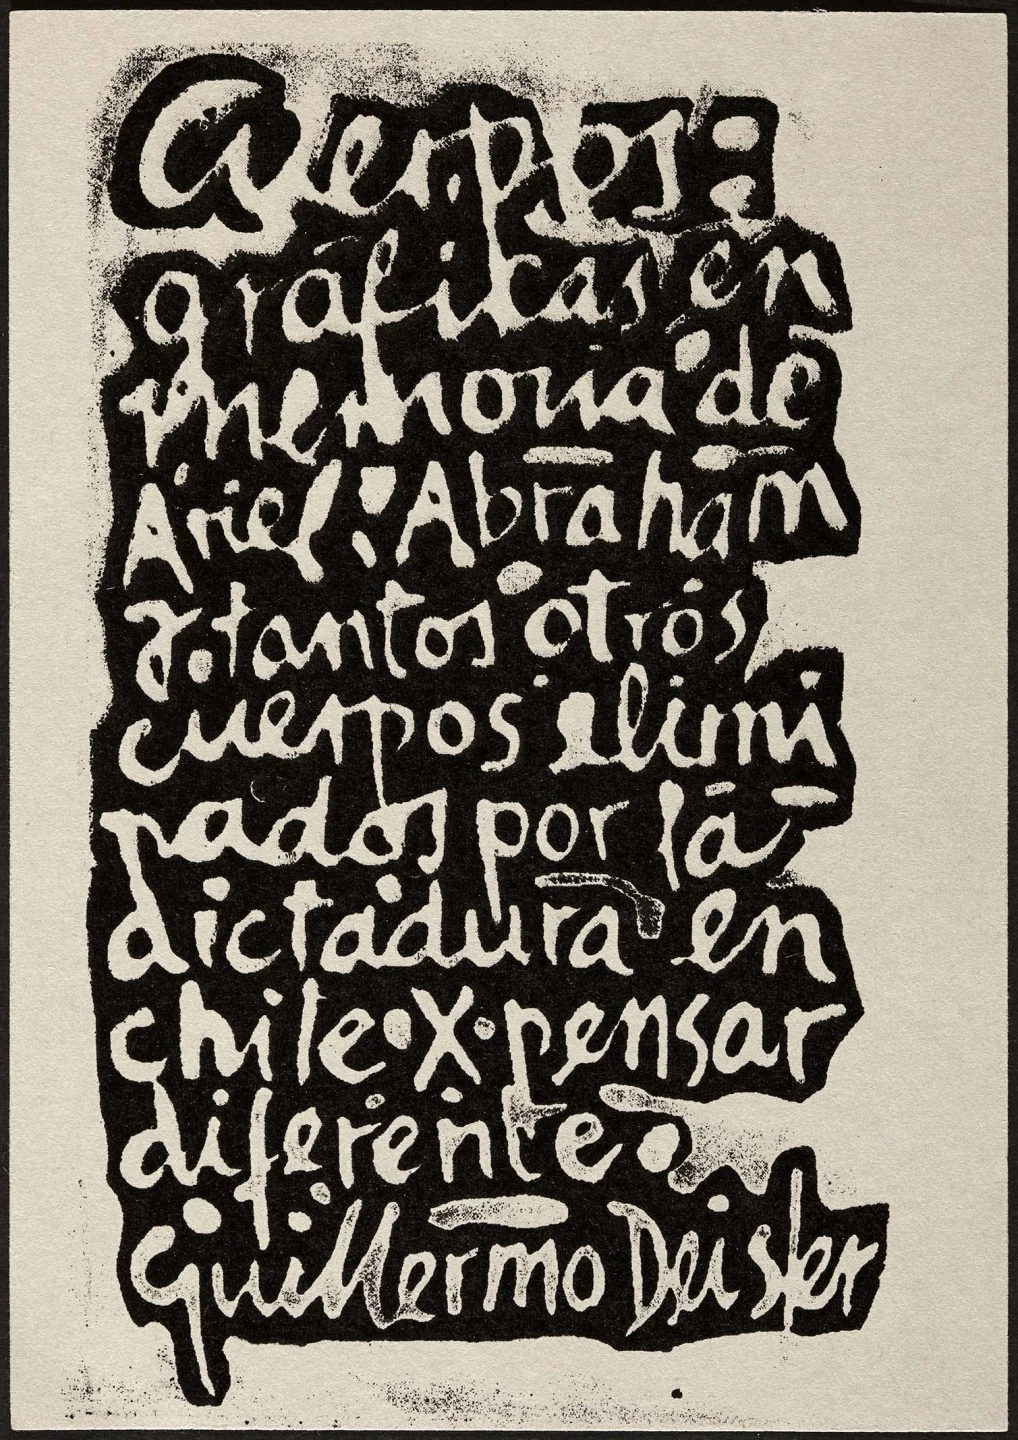 Cuerpos:
gráficas en
memoria de
Ariel: Abraham
y. tantos otros
cuerpos elimi
nados por la
dictadura en
chile·X·pensar
diferente.
guillermo Deisler